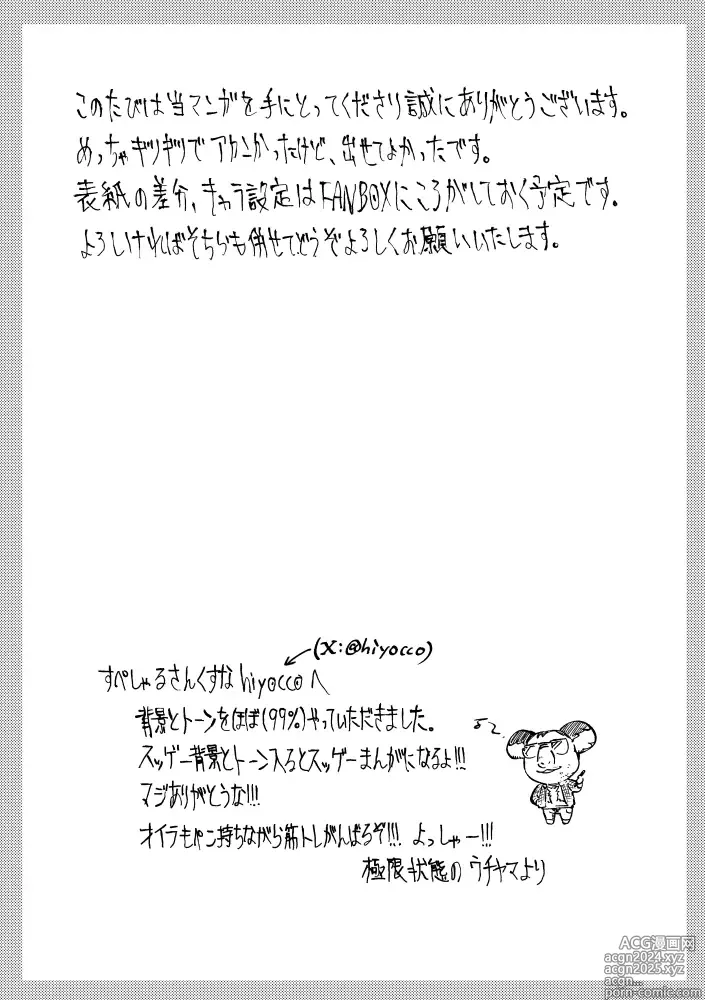 このたびは当マンガを手にとってくださり誠にありがとうございます。
めっちゃギリギリでアカンかったけど、出せてよかったです。
表紙の差分、キャラ設定はFANBOXにころがしておく予定です。
よろしければそちらも併せてどうぞよろしくお願いいたします。
(X:@hiyocco)
すぺしゃるさんくすな hiyoccoへ
背景とトーンをほぼ(99%)やっていただきました。
スッゲー背景とトーン入るとスッゲーまんがになるよ!!!
マジありがとうな!!!
オイラもペン持ちながら筋トレがんばるぞ!!! よっしゃー!!!
極限状態の ウチヤマより
ACG漫画网
acgn2024.xyz
acgn2025.xyz
porn-comic.com